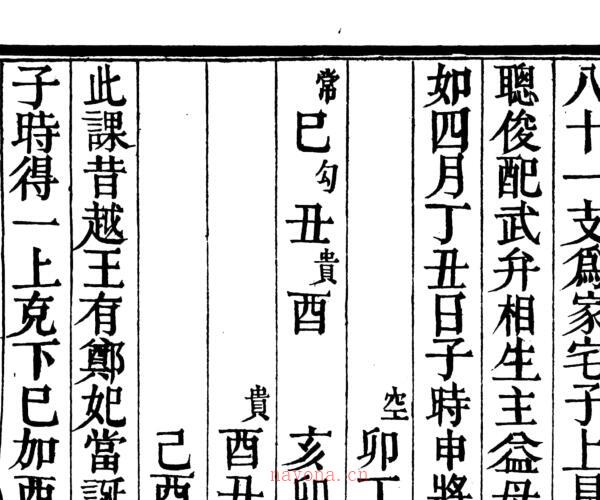 八十一支爲家宅子上見
聰俊配武弁相生主益母
如四月丁丑日子時申將
空卯丁
常巳勾丑貴酉 亥卯
貴酉丑
己酉
此課昔越王有鄭妃當誕
子時得一上克下巳加酉
nayona.cn